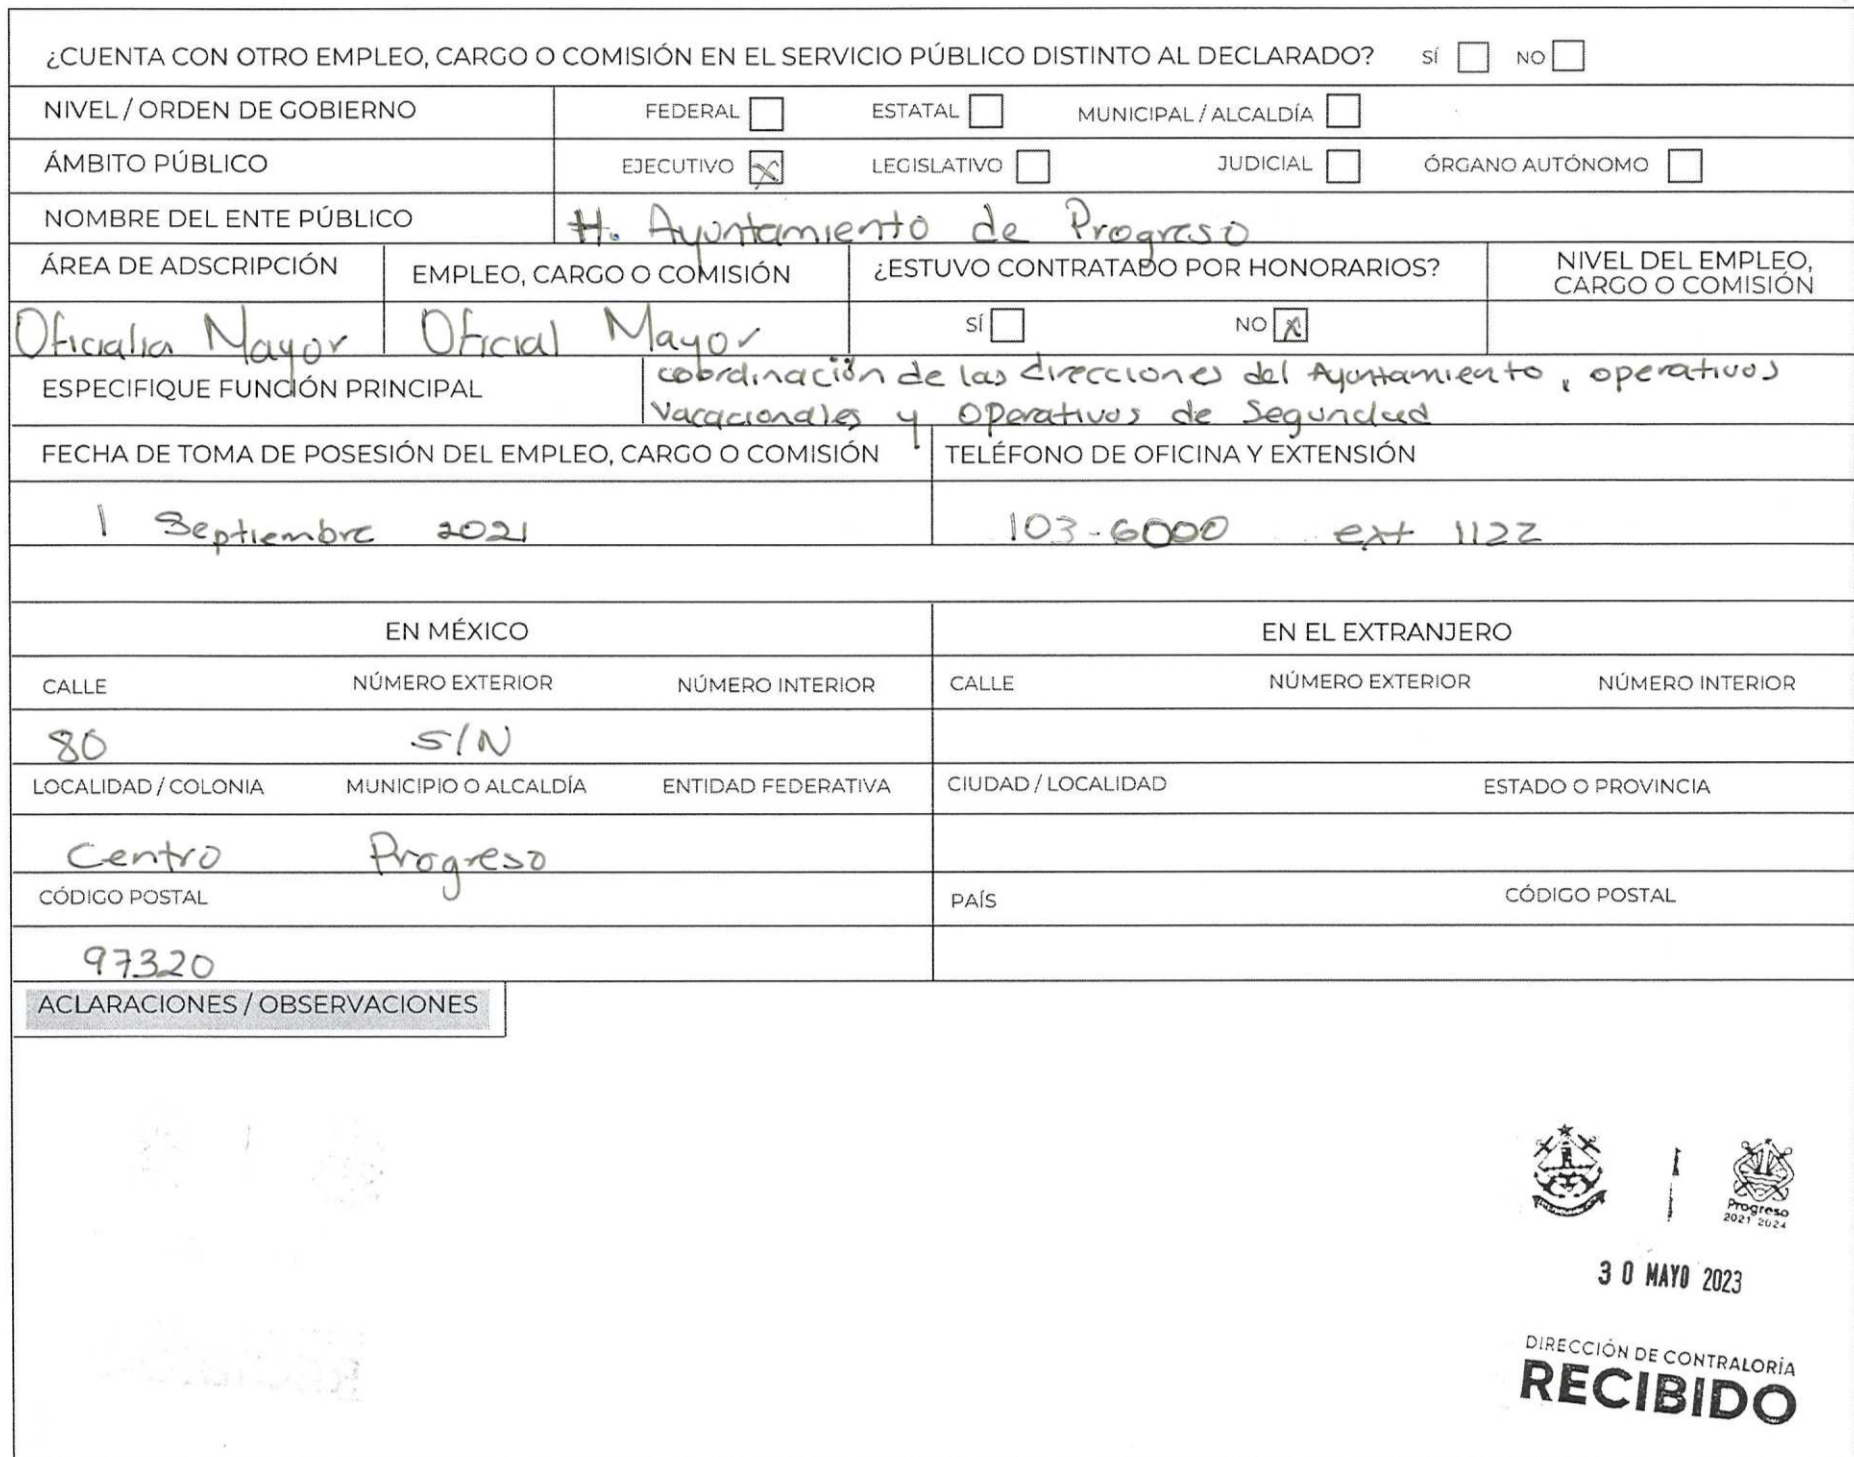 ¿CUENTA CON OTRO EMPLEO, CARGO O COMISIÓN EN EL SERVICIO PÚBLICO DISTINTO AL DECLARADO? SÍ NO
NIVEL / ORDEN DE GOBIERNO FEDERAL ESTATAL MUNICIPAL / ALCALDÍA
ÁMBITO PÚBLICO EJECUTIVO X LEGISLATIVO JUDICIAL ÓRGANO AUTÓNOMO
NOMBRE DEL ENTE PÚBLICO H. Ayuntamiento de Progreso
ÁREA DE ADSCRIPCIÓN EMPLEO, CARGO O COMISIÓN ¿ESTUVO CONTRATADO POR HONORARIOS? NIVEL DEL EMPLEO,
CARGO O COMISIÓN
Oficialia Mayor Oficial Mayor SÍ NO X
ESPECIFIQUE FUNCIÓN PRINCIPAL coordinación de las direcciones del Ayuntamiento, operativos
vacacionales y operativos de Seguridad
FECHA DE TOMA DE POSESIÓN DEL EMPLEO, CARGO O COMISIÓN TELÉFONO DE OFICINA Y EXTENSIÓN
1 Septiembre 2021 103-6000 ext 1122
EN MÉXICO EN EL EXTRANJERO
CALLE NÚMERO EXTERIOR NÚMERO INTERIOR CALLE NÚMERO EXTERIOR NÚMERO INTERIOR
80 S/N
LOCALIDAD / COLONIA MUNICIPIO O ALCALDÍA ENTIDAD FEDERATIVA CIUDAD / LOCALIDAD ESTADO O PROVINCIA
Centro Progreso
CÓDIGO POSTAL PAÍS CÓDIGO POSTAL
97320
ACLARACIONES / OBSERVACIONES
Progreso
2021 2024
30 MAYO 2023
DIRECCIÓN DE CONTRALORÍA
RECIBIDO